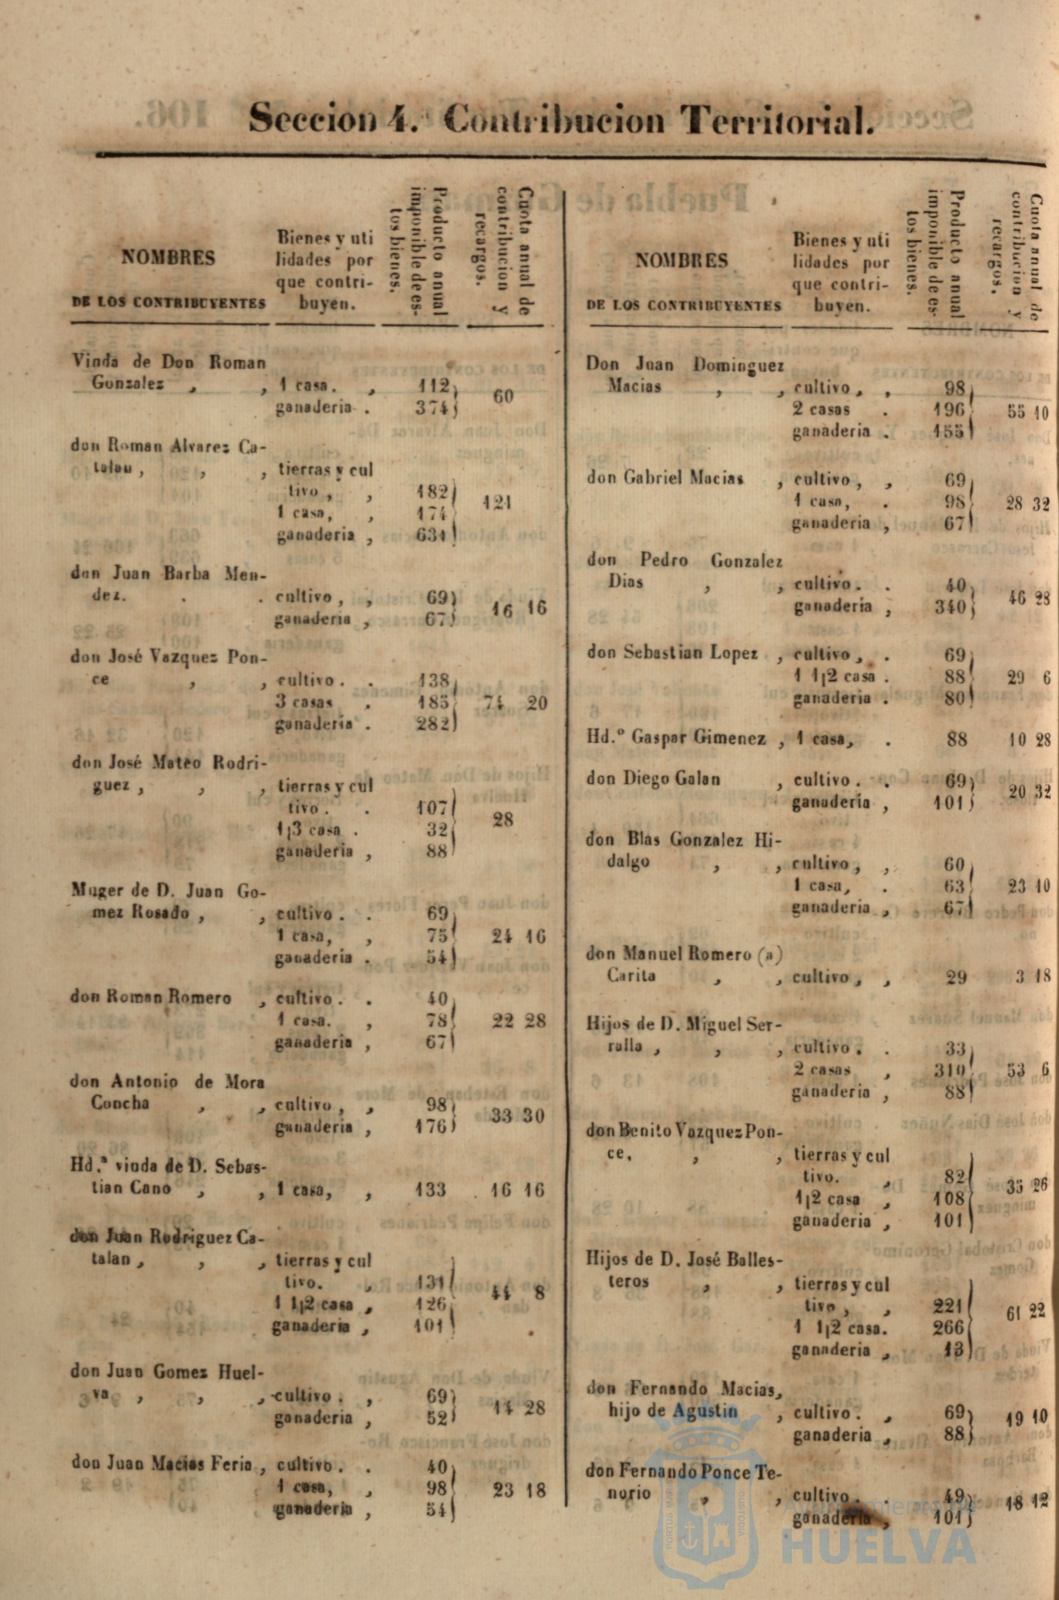 Seccion 4. Contribucion Territorial.
NOMBRES
DE LOS CONTRIBUYENTES
Bienes y uti
lidades por
que contri-
buyen.
Producto anual
imponible de es-
tos bienes.
Cuota anual de
contribucion y
recargos.
Viuda de Don Roman
Gonzalez , , 1 casa. , 112
ganaderia . 374 60
don Roman Alvarez Ca-
talan , , , tierras y cul
tivo , , 182
1 casa, , 174 121
ganaderia , 631
don Juan Barba Men-
dez. . . cultivo , , 69
ganaderia , 67 16 16
don José Vazquez Pon-
ce , , cultivo . . 138
3 casas . 185 74 20
ganaderia . 282
don José Mateo Rodri-
guez , , , tierras y cul
tivo . . 107
1|3 casa . 32 28
ganaderia , 88
Muger de D. Juan Go-
mez Rosado , , cultivo . . 69
1 casa, , 75 24 16
ganaderia . 54
don Roman Romero , cultivo . . 40
1 casa. , 78 22 28
ganaderia , 67
don Antonio de Mora
Concha , , cultivo , , 98
ganaderia , 176 33 30
Hd.ª viuda de D. Sebas-
tian Cano , , 1 casa, , 133 16 16
don Juan Rodriguez Ca-
talan , , , tierras y cul
tivo. , 131
1 1|2 casa , 126 44 8
ganaderia , 101
don Juan Gomez Huel-
va , , , cultivo . , 69
ganaderia , 52 14 28
don Juan Macias Feria , cultivo . . 40
1 casa, , 98 23 18
ganaderia , 54
NOMBRES
DE LOS CONTRIBUYENTES
Bienes y uti
lidades por
que contri-
buyen.
Producto anual
imponible de es-
tos bienes.
Cuota anual de
contribucion y
recargos.
Don Juan Dominguez
Macias , , cultivo , , 98
2 casas . 196 55 10
ganaderia . 155
don Gabriel Macias , cultivo , , 69
1 casa, . 98 28 32
ganaderia , 67
don Pedro Gonzalez
Dias , , cultivo . . 40
ganaderia , 340 46 28
don Sebastian Lopez , cultivo , . 69
1 1|2 casa . 88 29 6
ganaderia . 80
Hd.º Gaspar Gimenez , 1 casa, . 88 10 28
don Diego Galan , cultivo . . 69
ganaderia , 101 20 32
don Blas Gonzalez Hi-
dalgo , , cultivo , , 60
1 casa, . 63 23 10
ganaderia , 67
don Manuel Romero (a)
Carita , , cultivo , , 29 3 18
Hijos de D. Miguel Ser-
ralla , , , cultivo . . 33
2 casas , 310 53 6
ganaderia , 88
don Benito Vazquez Pon-
ce, , , tierras y cul
tivo. , 82
1|2 casa , 108 35 26
ganaderia , 101
Hijos de D. José Balles-
teros , , tierras y cul
tivo , , 221
1 1|2 casa. 266 61 22
ganaderia , 13
don Fernando Macias,
hijo de Agustin , cultivo . , 69
ganaderia , 88 19 10
don Fernando Ponce Te-
norio , , cultivo . . 49
ganaderia , 101 18 12
HUELVA